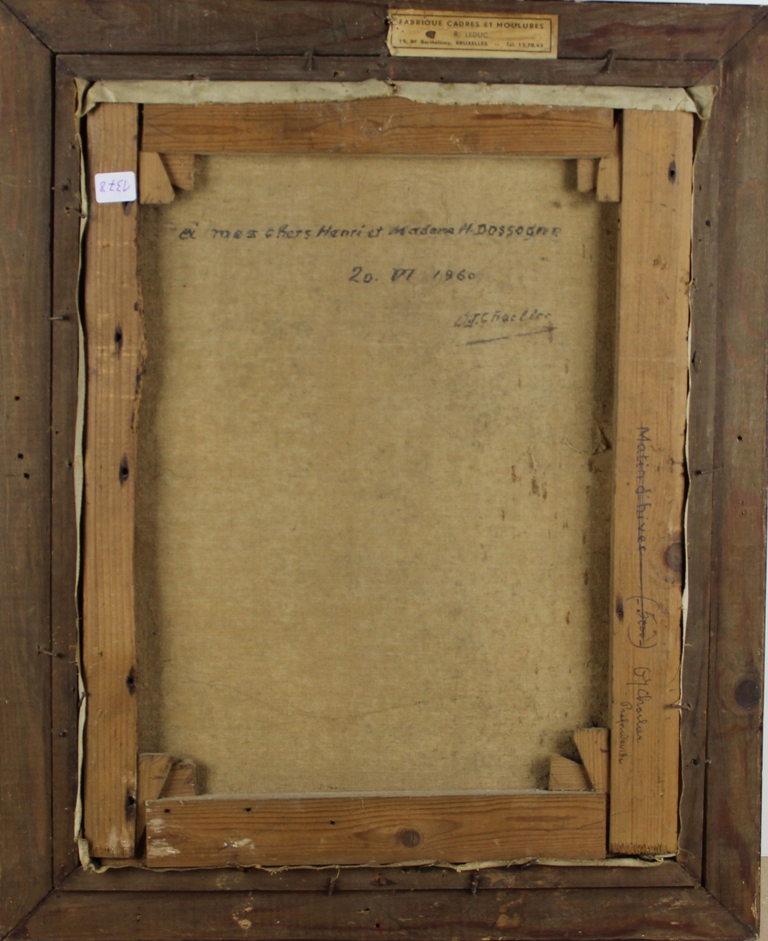 FABRIQUE CADRES ET MOULURES
R. LEDUC
BRUXELLES - Tél.
1378
à mes chers Henri et Madame H. DOSSOGNE
20. VI 1960
G.J. Charlier
Matin d'hiver (5000) Charlier